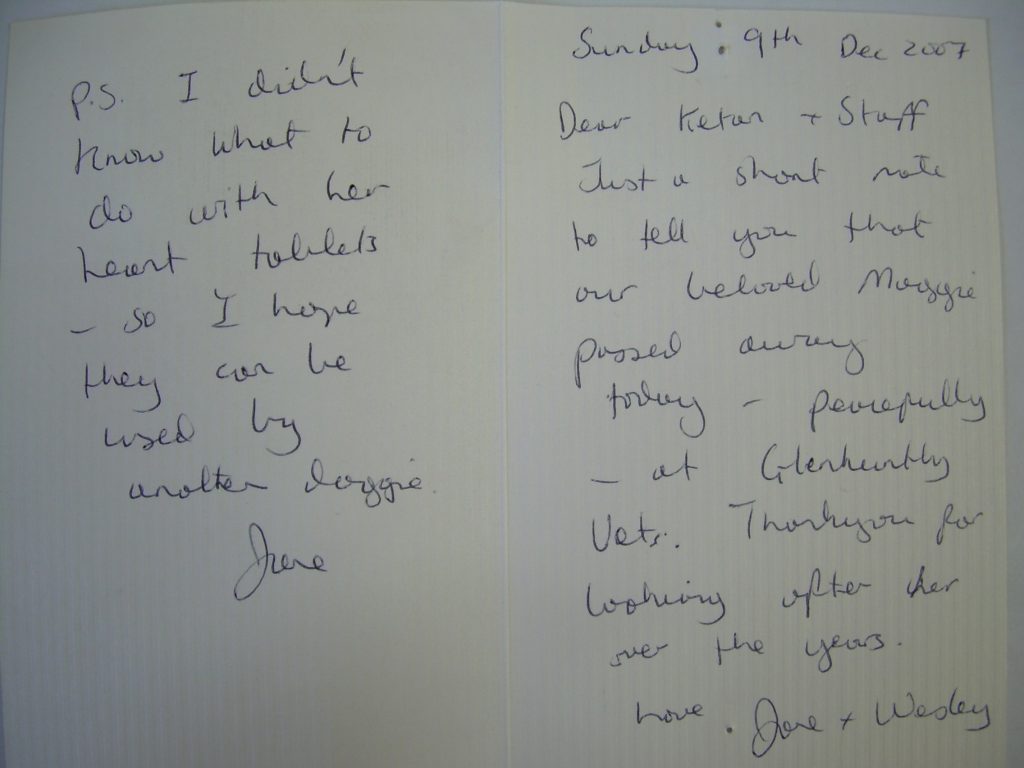 Sunday : 9th Dec 2007
Dear Ketan + Staff
Just a short note
to tell you that
our beloved Maggie
passed away
today - peacefully
- at Glenhuntly
Vets. Thankyou for
looking after her
over the years.
Love. Jane + Wesley
P.S. I didn't
know what to
do with her
heart tablets
- so I hope
they can be
used by
another doggie.
Jane